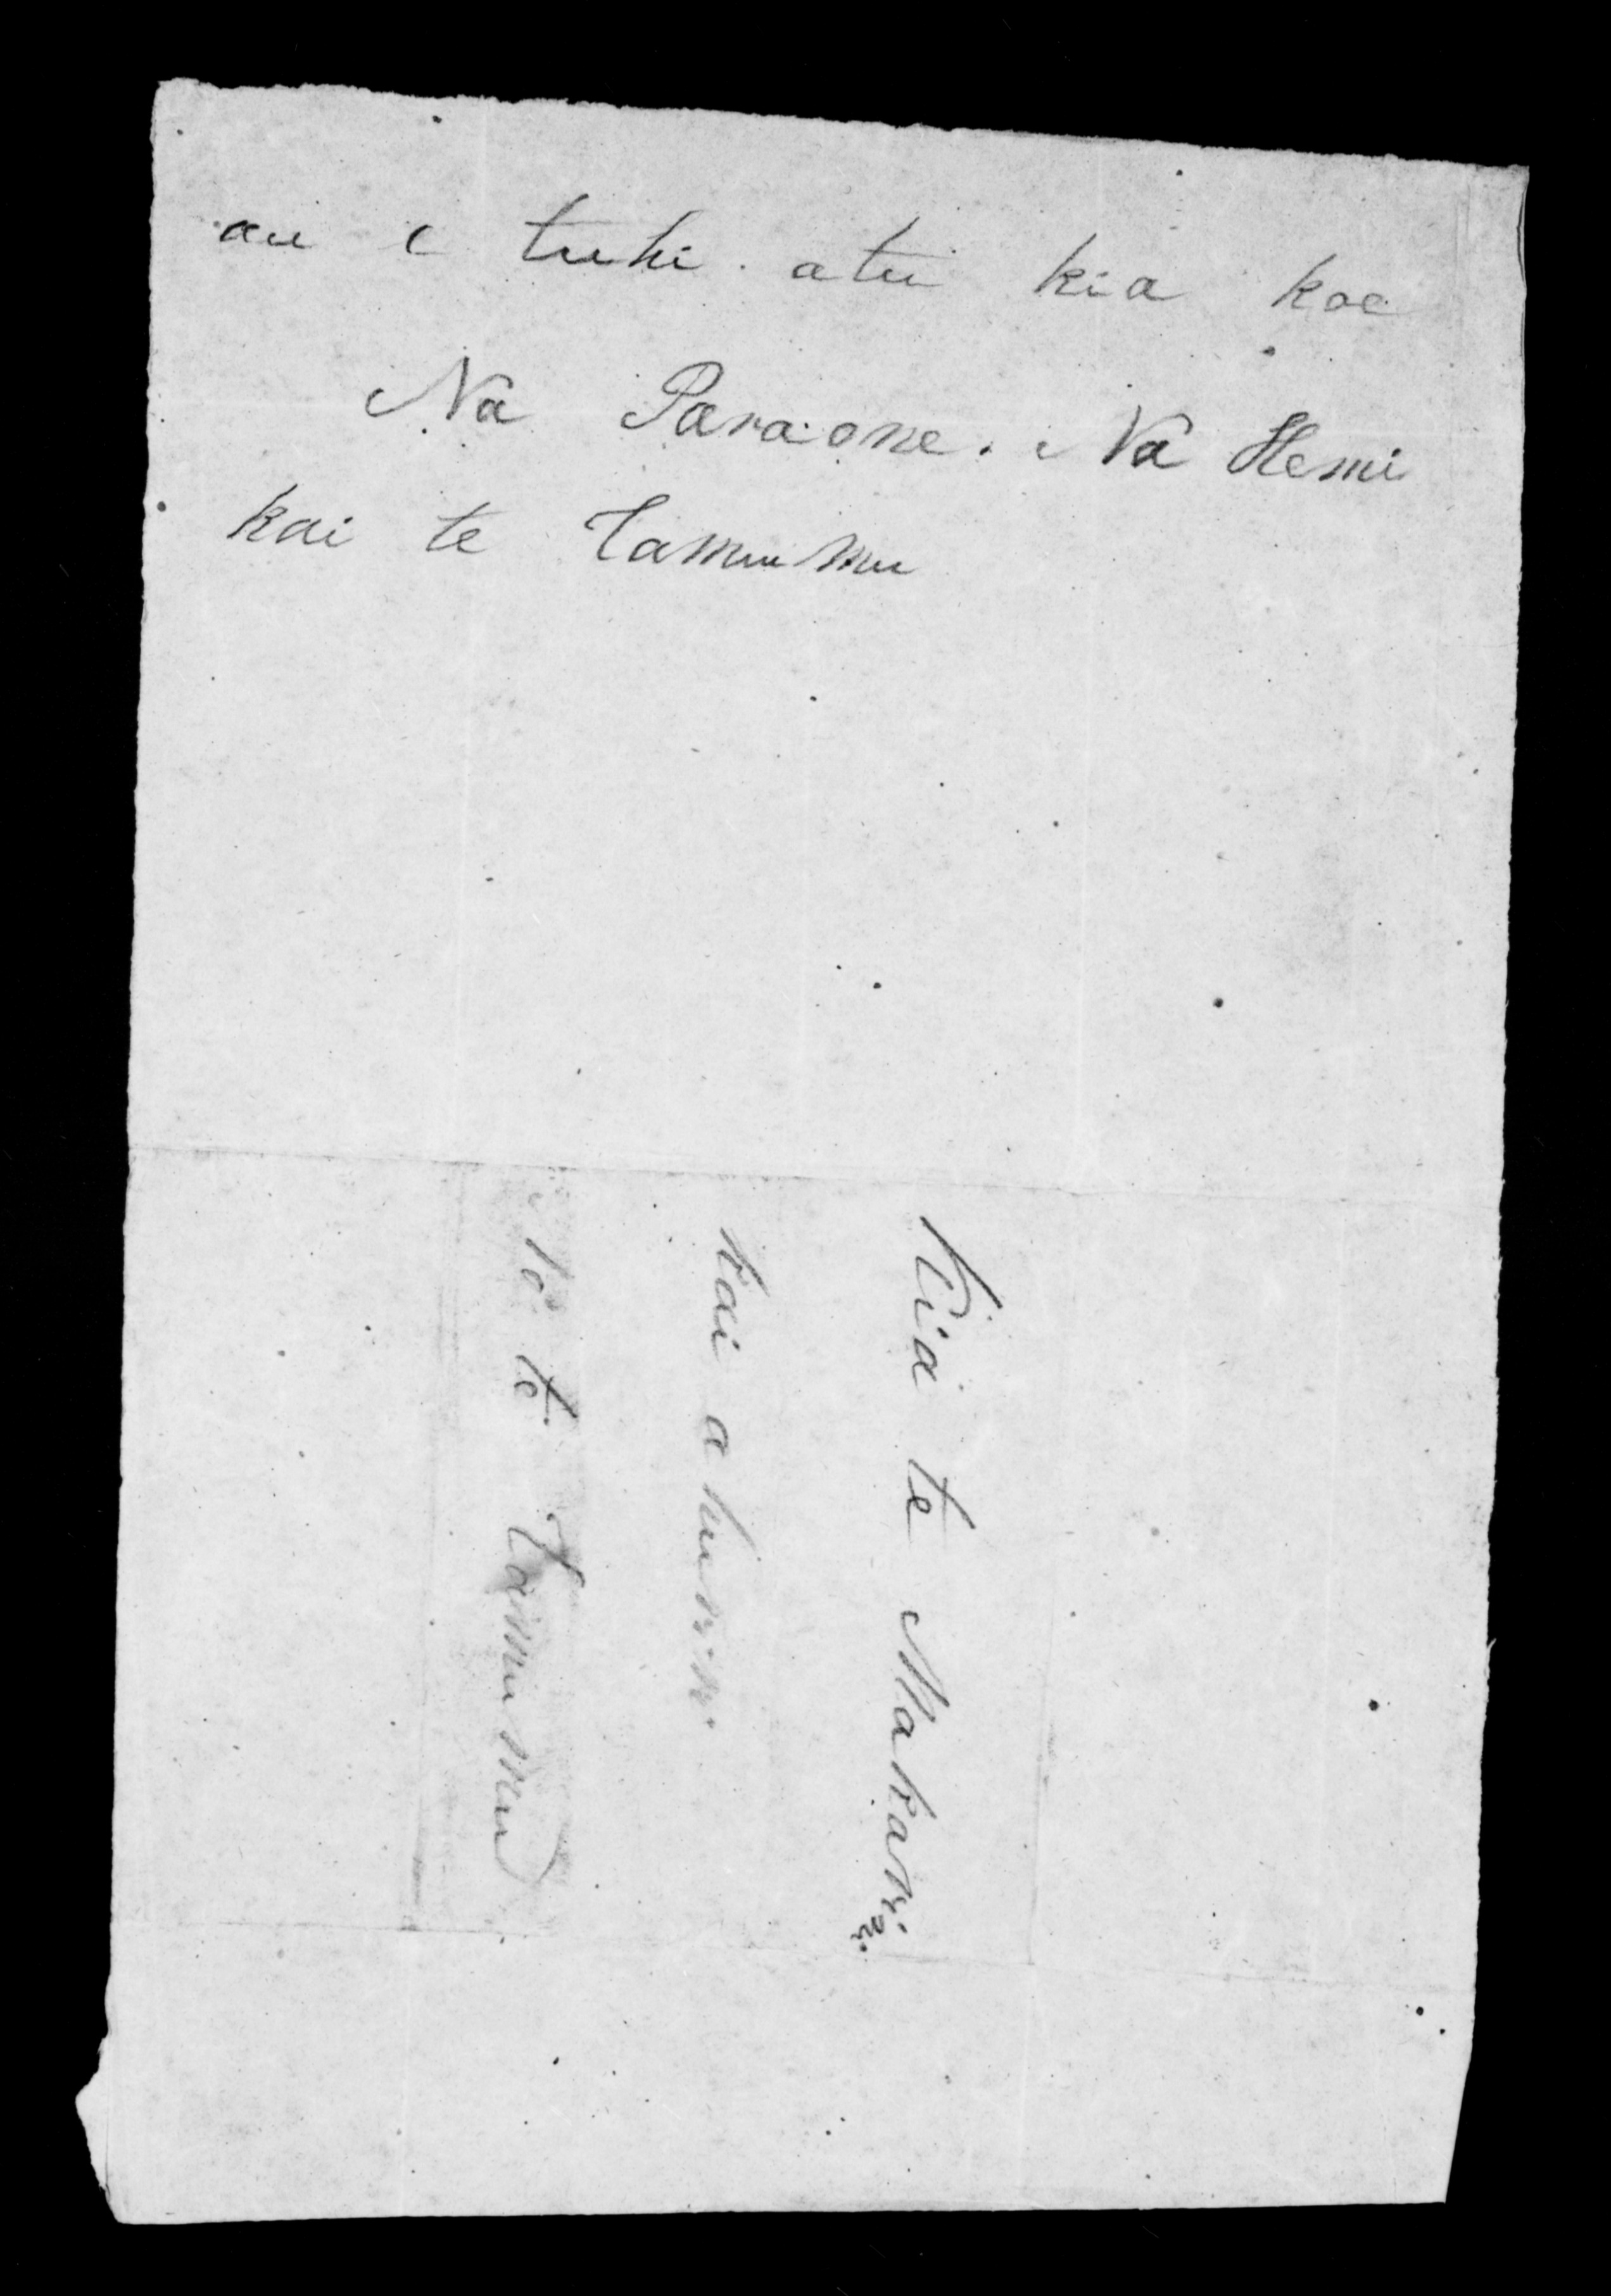 au e tuhi atu kia koe
Na Paraone. Na Hemi
kai te Tamumu
Kia te Makarini
kai ahuriri
No te Tamumu